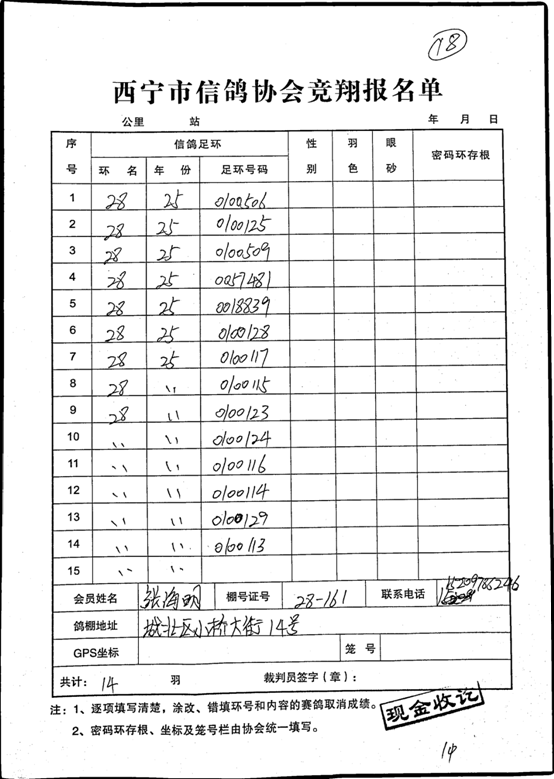 78
西宁市信鸽协会竞翔报名单
公里 站 年 月 日
序号 信鸽足环 性别 羽色 眼砂 密码环存根
环 名 年 份 足环号码
1 28 25 0100506
2 28 25 0100125
3 28 25 0100509
4 28 25 0057481
5 28 25 0018839
6 28 25 0100128
7 28 25 0100117
8 28 〃 0100115
9 28 〃 0100123
10 〃 〃 0100124
11 〃 〃 0100116
12 〃 〃 0100114
13 〃 〃 0100129
14 〃 〃 0100113
15 〃 〃
会员姓名 张海明 棚号证号 28-161 联系电话 15209785246
鸽棚地址 城北区小桥大街14号
GPS坐标 笼 号
共计: 14 羽 裁判员签字(章):
注:1、逐项填写清楚,涂改、错填环号和内容的赛鸽取消成绩。
2、密码环存根、坐标及笼号栏由协会统一填写。
现金收讫
14